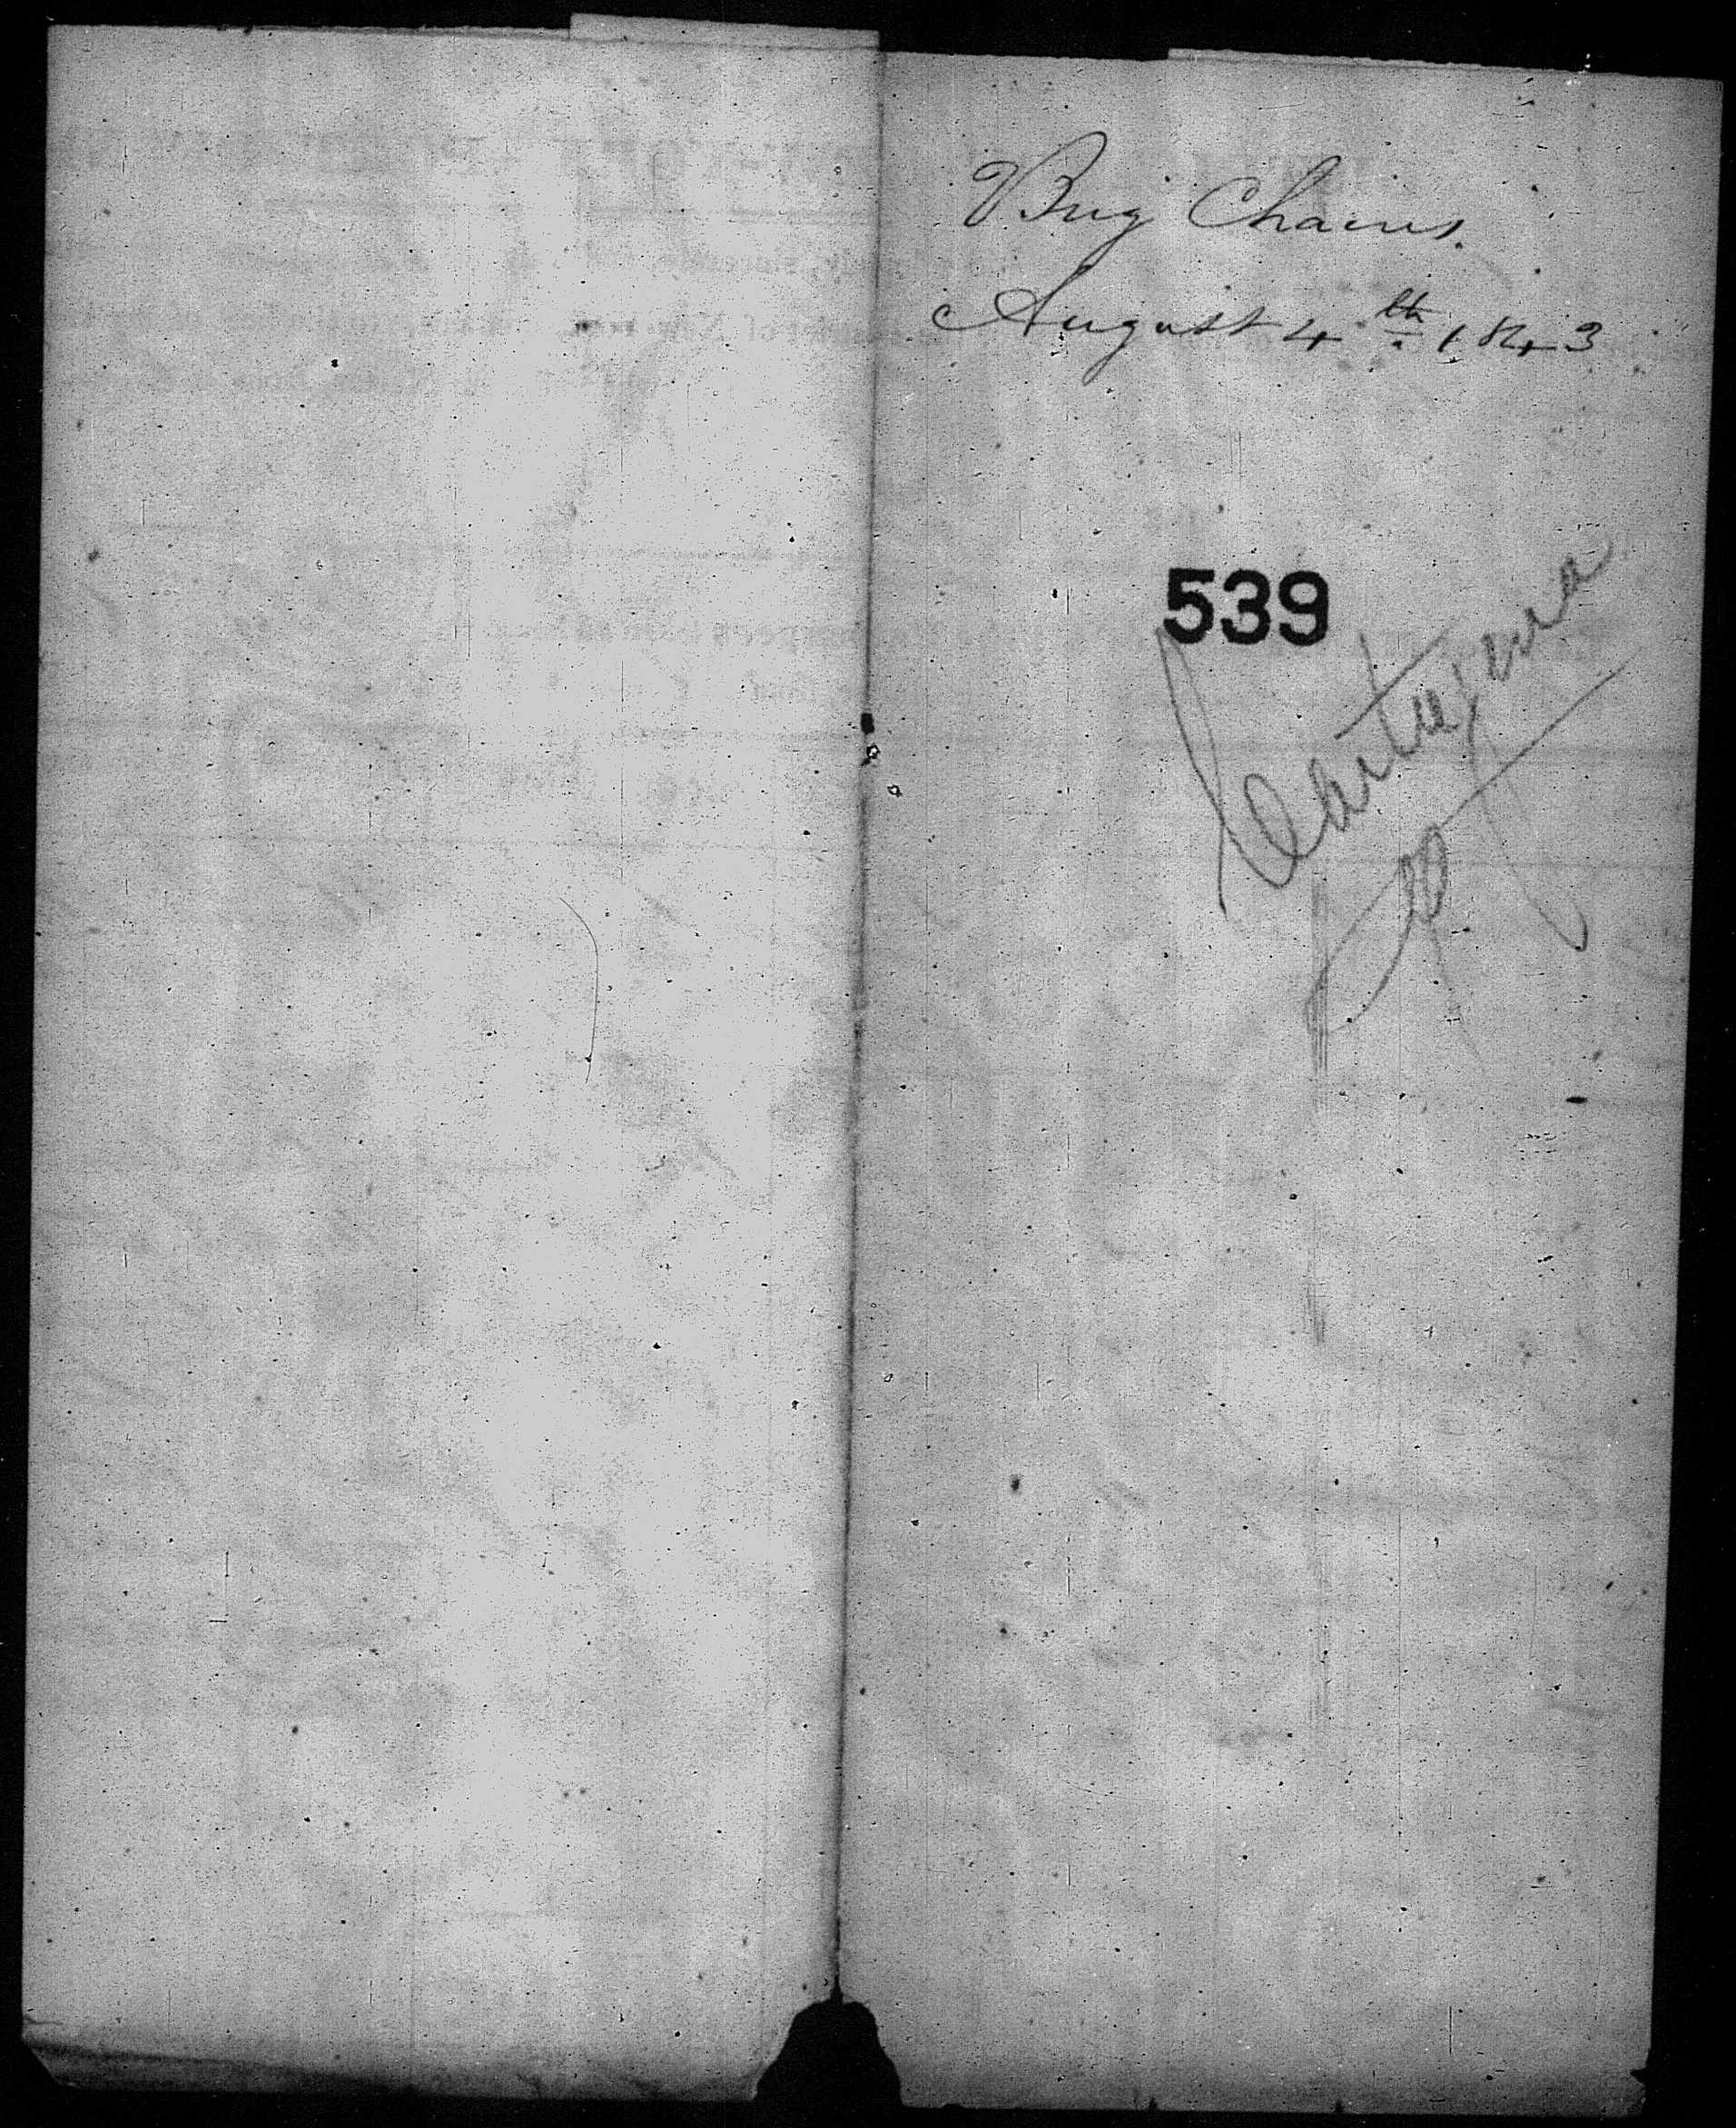 Brig Chaires.
August 4th 1843
539
Cartagena